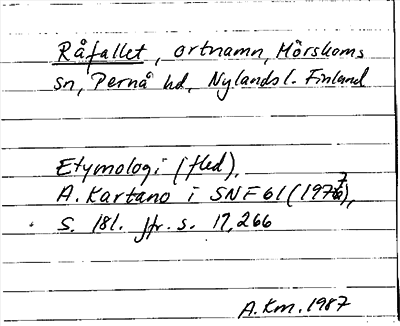 Råfallet, ortnamn, Mörskoms
sn, Pernå hd, Nylands l. Finland
Etymologi (fled),
A. Kartano i SNF 61 (1977),
s. 181. jfr. s. 17, 266
A.Km. 1987